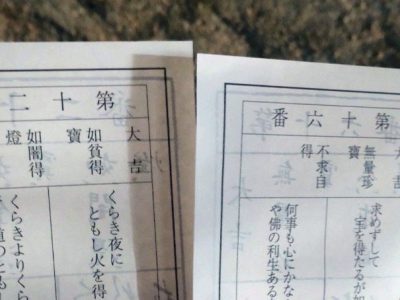 第十二
大吉
如貧得
寶
如闇得
燈
くらき夜に
ともし火を得
くらきよりくら
第十六番
大吉
無量珍
寶
不求自
得
求めずして
宝を得たるが如
何事も心にかな
や佛の利生ある